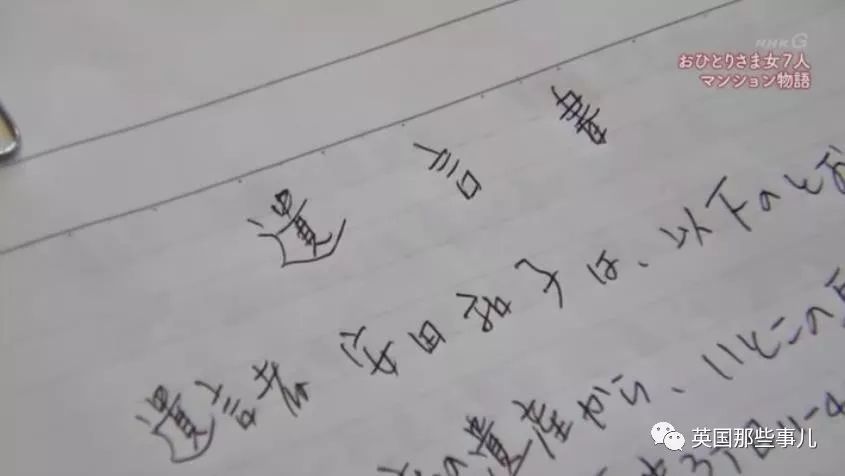 NHK G
おひとりさま女7人
マンション物語
遺言書
遺言者 安田和子は、以下のとお
遺産から、いとこの
3丁目11-4
英国那些事儿